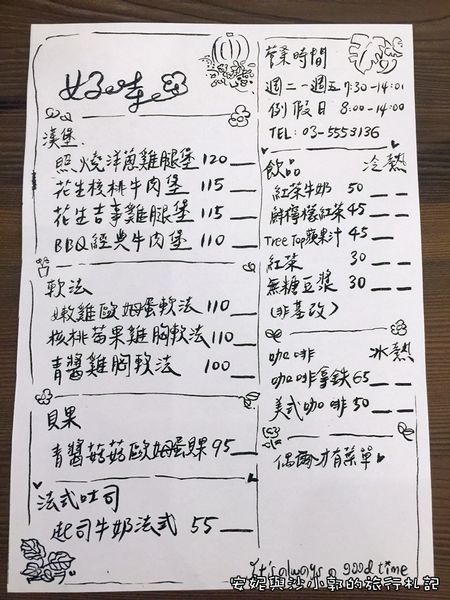 好味
漢堡
照燒洋蔥雞腿堡 120
花生核桃牛肉堡 115
花生吉事雞腿堡 115
BBQ經典牛肉堡 110
軟法
嫩雞歐姆蛋軟法 110
核桃莓果雞胸軟法 110
青醬雞胸軟法 100
貝果
青醬菇菇歐姆蛋貝果 95
法式吐司
起司牛奶法式 55
營業時間
週二-週五 7:30-14:01
例假日 8:00-14:00
TEL: 03-5553136
飲品 冷熱
紅茶牛奶 50
鮮檸檬紅茶 45
Tree Top蘋果汁 45
紅茶 30
無糖豆漿 30
(非基改)
咖啡 冰熱
咖啡拿鐵 65
美式咖啡 50
偶爾才有菜單
It's always a good time
安妮與沙小郭的旅行札記